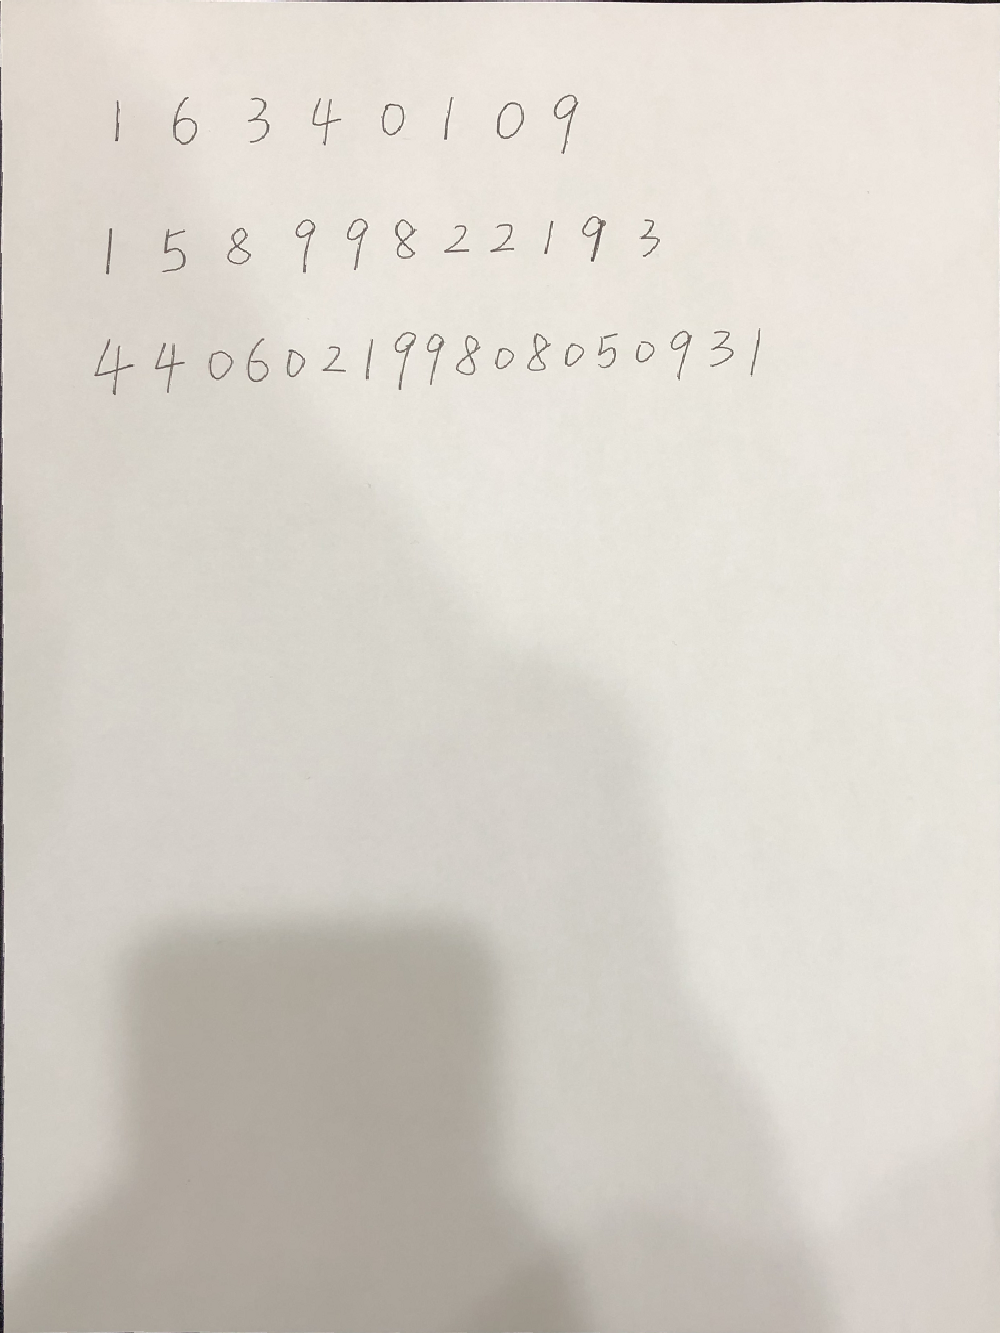 1 6 3 4 0 1 0 9
1 5 8 9 9 8 2 2 1 9 3
440602199808050931